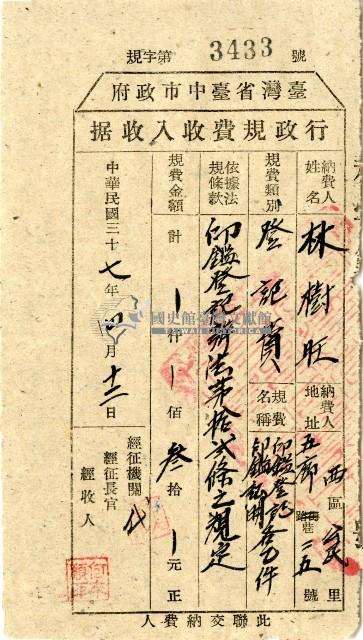 規字第 3433 號
臺灣省臺中市政府
行政規費收入收据
納費人姓名 林樹旺
納費人地址 西區 民里
五廊巷 三五號
規費類別 登記費
規費名稱 印鑑登記
印鑑証明各乙件
依據法規條款 印鑑登記辦法第拾弍條之規定
規費金額 計 仟 佰 叁拾 元正
中華民國三十七年 月十二日
經征機關
經征長官
經收人
此聯交納費人
國史館臺灣文獻館
TAIWAN HISTORICA